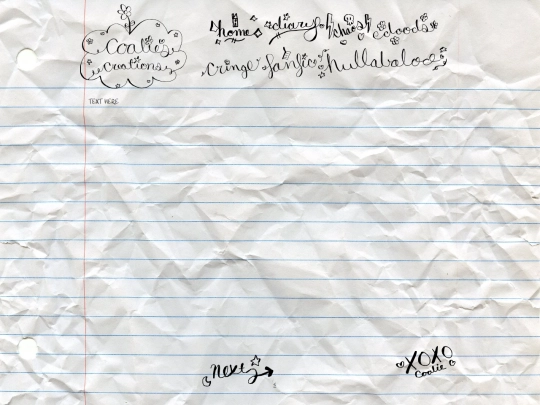 Coalie's
creations
home diary chaos doods
cringe fanfic hullabaloo
TEXT HERE
next
XOXO
Coalie